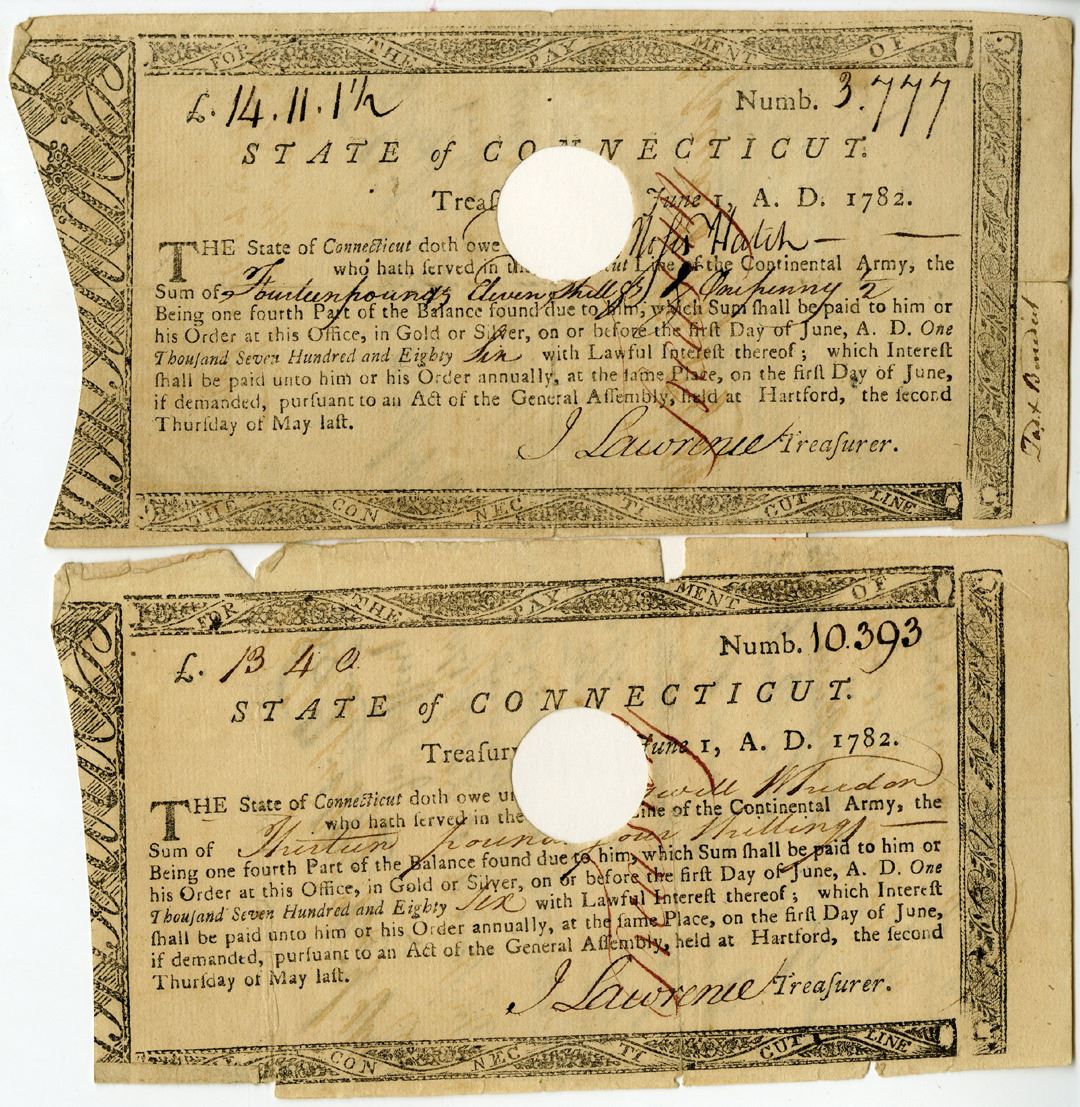 FOR THE PAY MENT OF
£. 14.11.1½ Numb. 3.777
STATE of CONNECTICUT.
Treaſ June 1, A. D. 1782.
THE State of Connecticut doth owe Hatch
who hath ſerved in th cut Line of the Continental Army, the
Sum of Fourteen pounds Eleven Shillgs & One penny ½
Being one fourth Part of the Balance found due to him, which Sum ſhall be paid to him or
his Order at this Office, in Gold or Silver, on or before the firſt Day of June, A. D. One
Thouſand Seven Hundred and Eighty Six with Lawful Intereſt thereof; which Intereſt
ſhall be paid unto him or his Order annually, at the ſame Place, on the firſt Day of June,
if demanded, purſuant to an Act of the General Aſſembly, held at Hartford, the ſecond
Thurſday of May laſt.
J Lawrence Treaſurer.
THE CON NEC TI CUT LINE
FOR THE PAY MENT OF
£. 13 4 0 Numb. 10.393
STATE of CONNECTICUT.
Treaſury June 1, A. D. 1782.
THE State of Connecticut doth owe u Whedon
who hath ſerved in the Line of the Continental Army, the
Sum of Thirteen pound our Shillings
Being one fourth Part of the Balance found due to him, which Sum ſhall be paid to him or
his Order at this Office, in Gold or Silver, on or before the firſt Day of June, A. D. One
Thouſand Seven Hundred and Eighty Six with Lawful Intereſt thereof; which Intereſt
ſhall be paid unto him or his Order annually, at the ſame Place, on the firſt Day of June,
if demanded, purſuant to an Act of the General Aſſembly, held at Hartford, the ſecond
Thurſday of May laſt.
J Lawrence Treaſurer.
CON NEC TI CUT LINE